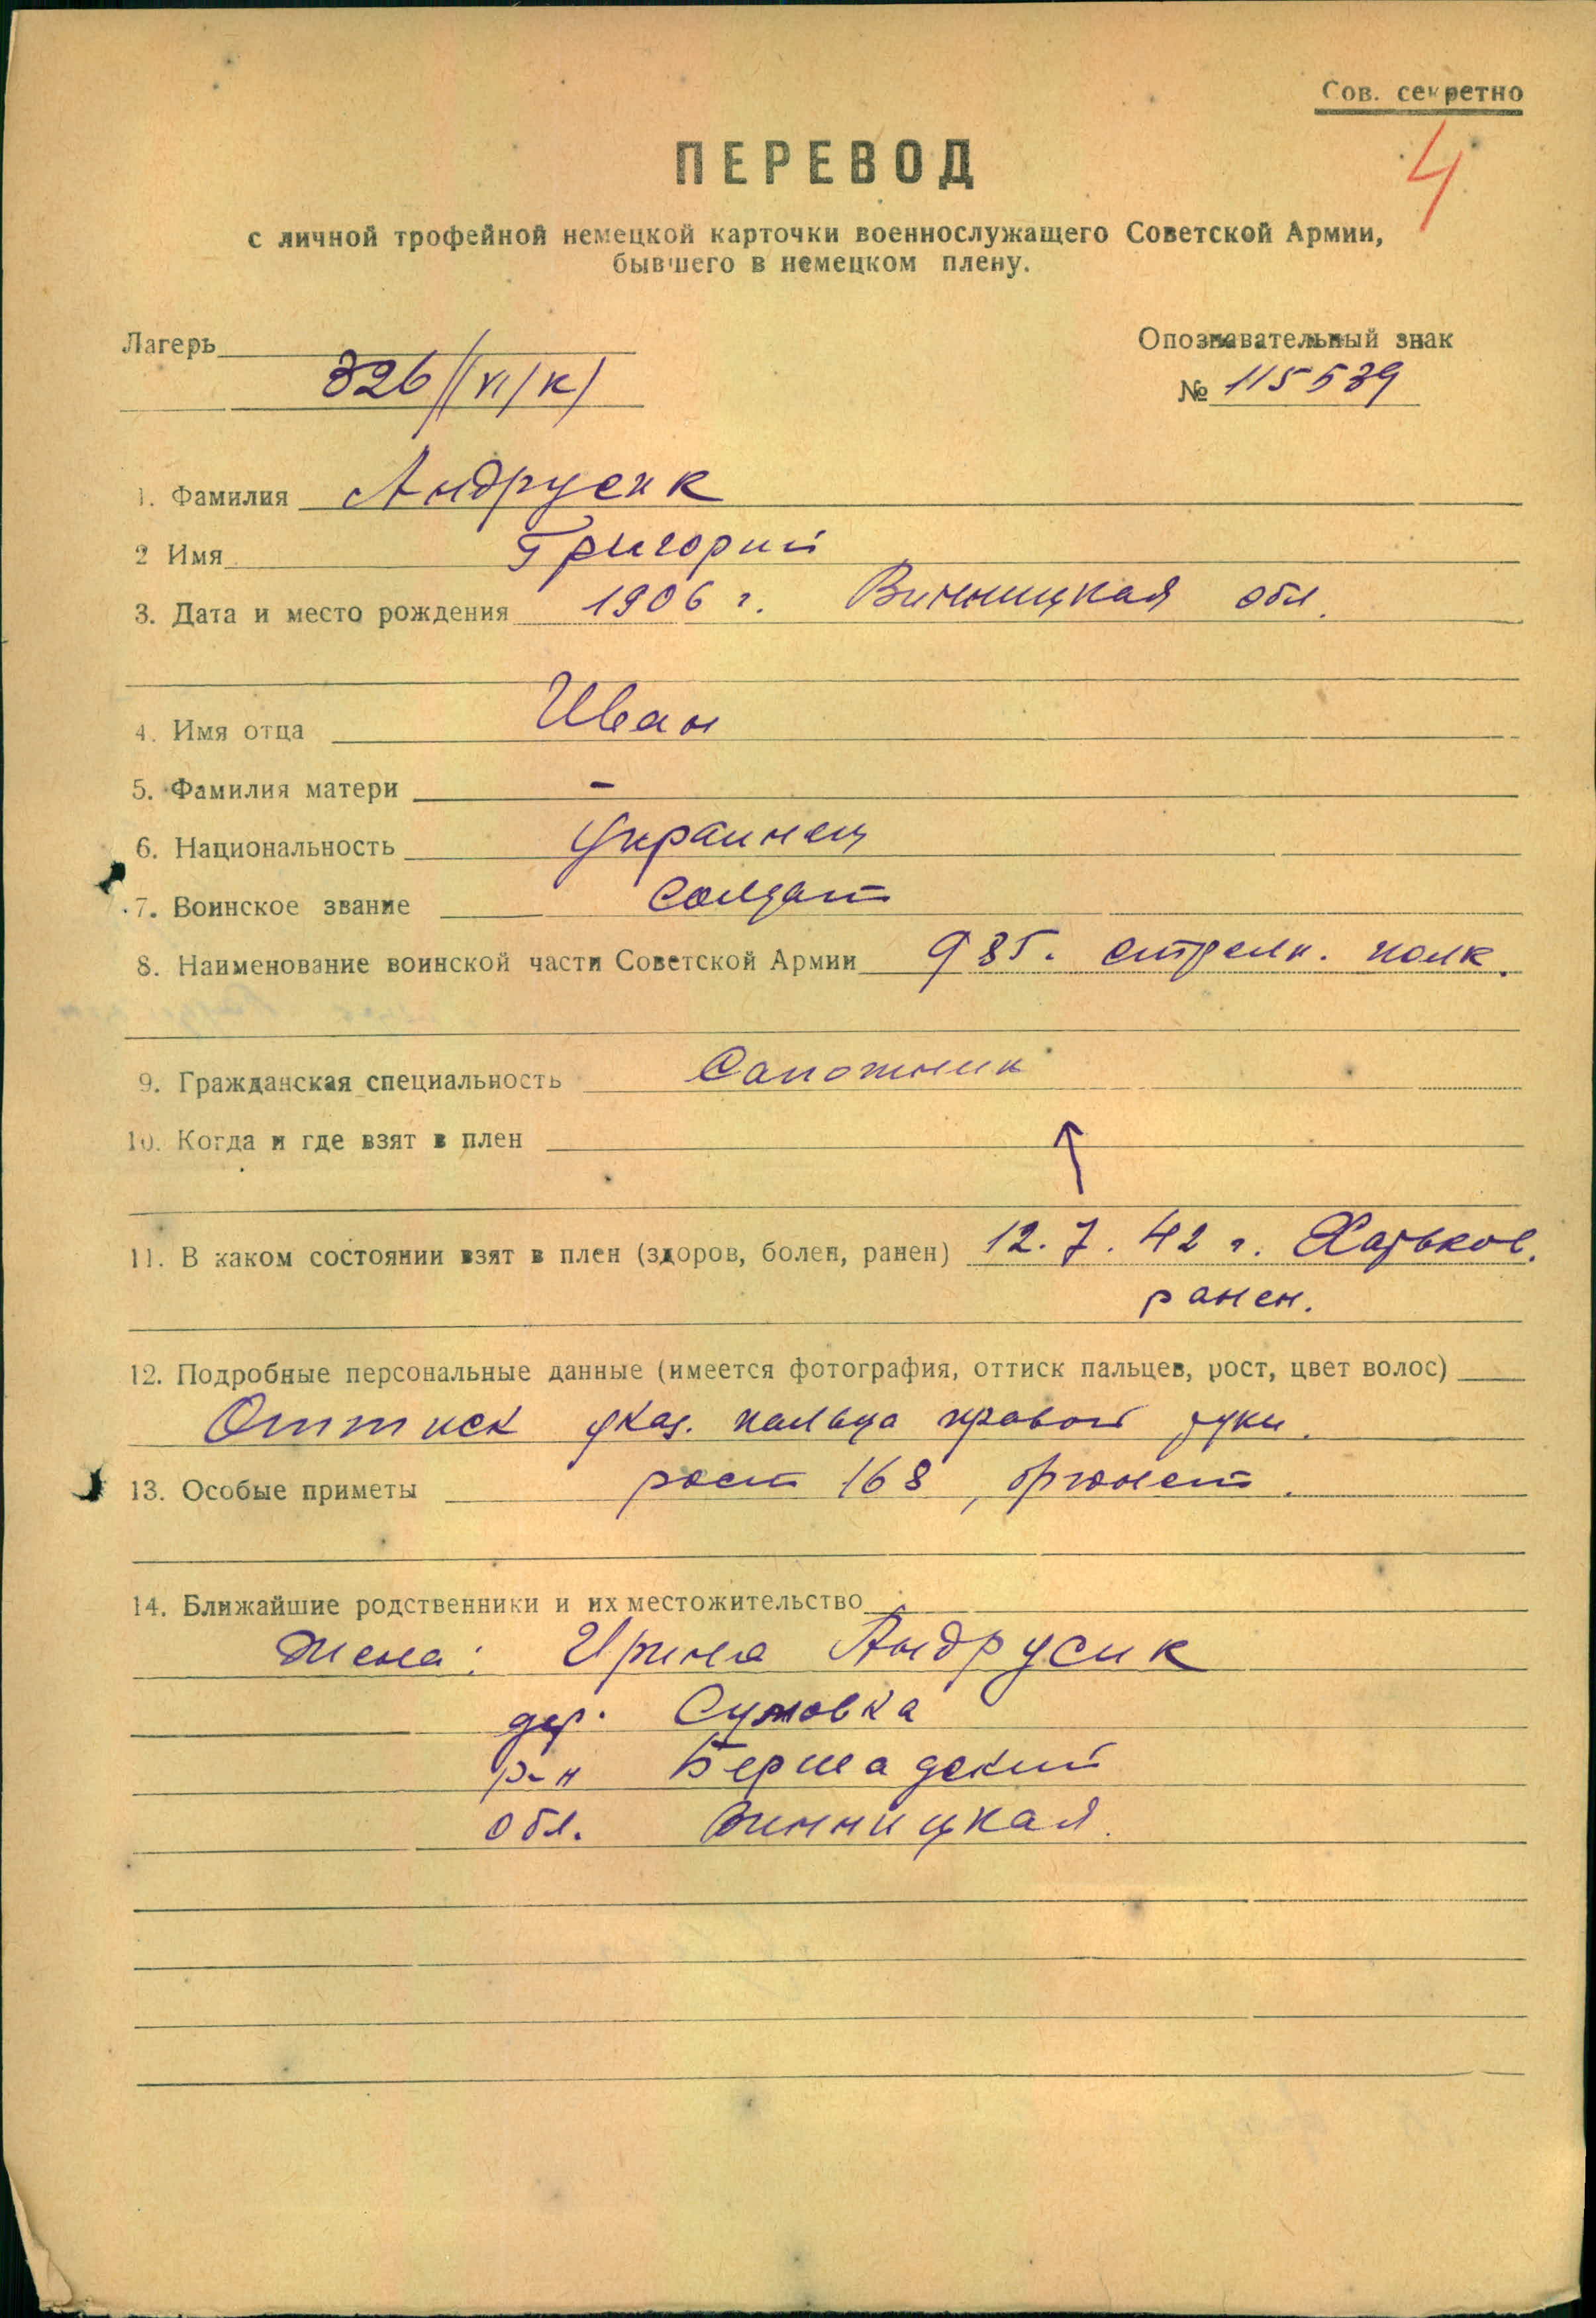 Сов. секретно
4
ПЕРЕВОД
с личной трофейной немецкой карточки военнослужащего Советской Армии,
бывшего в немецком плену.
Лагерь
Опознавательный знак
326/(VI/К)
№ 115539
1. Фамилия Андрусик
2 Имя Григорий
3. Дата и место рождения 1906 г. Винницкая обл.
4. Имя отца Иван
5. Фамилия матери –
6. Национальность Украинец
7. Воинское звание Солдат
8. Наименование воинской части Советской Армии 985. стрелк. полк.
9. Гражданская специальность Сапожник
10. Когда и где взят в плен
11. В каком состоянии взят в плен (здоров, болен, ранен) 12.7.42 г. Харьков.
ранен.
12. Подробные персональные данные (имеется фотография, оттиск пальцев, рост, цвет волос)
Оттиск указ. пальца правой руки.
13. Особые приметы рост 168, брюнет.
14. Ближайшие родственники и их местожительство
Жена: Ирина Андрусик
дер. Сумовка
р-н Бершадский
обл. Винницкая.